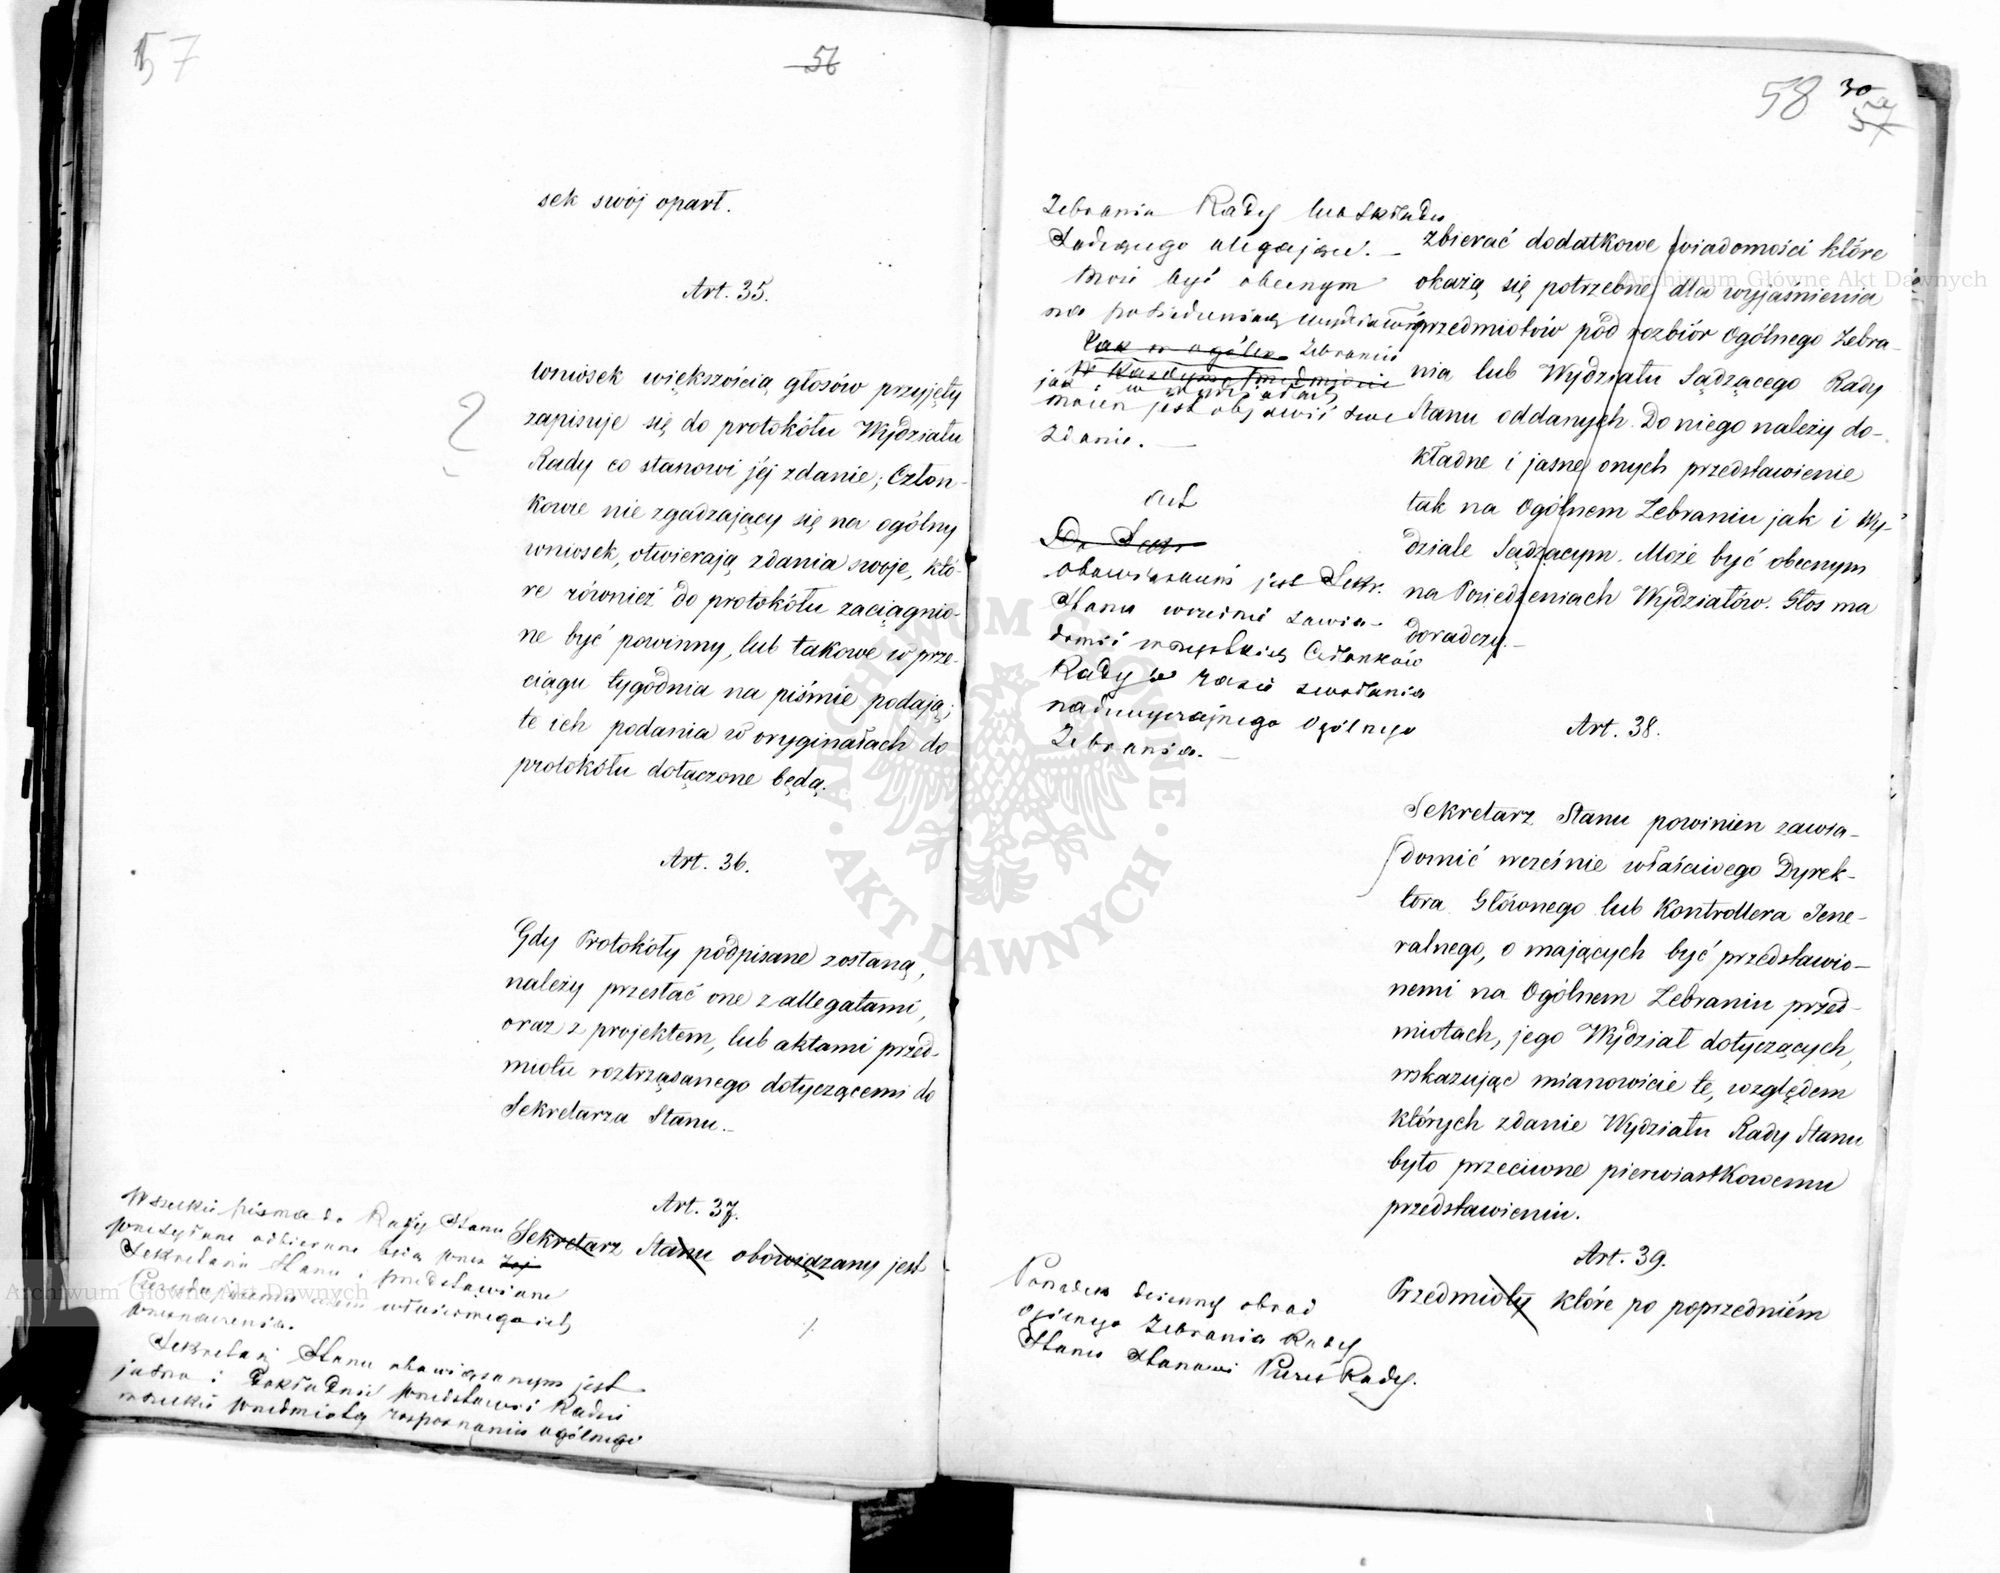 57
56
sek swój oparł.
Art. 35.
Wniosek większością głosów przyjęty
zapisuje się do protokółu Wydziału
Rady co stanowi jéj zdanie; Człon-
kowie nie zgadzający się na ogólny
wniosek, otwierają zdania swoje, któ-
re również do protokółu zaciągnio-
ne być powinny, lub takowe w prze-
ciagu tygodnia na piśmie podają;
te ich podania w oryginałach do
protokółu dołączone będą.
Art. 36.
Gdy Protokóły podpisane zostaną,
należy przesłać one z allegatami,
oraz z projektem, lub aktami przed-
miotu roztrząsanego dotyczącemi do
Sekretarza Stanu.-
Art. 37.
Sekretarz Stanu obowiązany jest
Wszelkie pisma do Rady Stanu
przesyłane odbierane będą przez
Sekretarza Stanu i przedstawiane
Prezydującemu celem właściwego ich
przeznaczenia.
Sekretarz Stanu obowiązanym jest
jasno i dokładnie przedstawić Radzie
wszelkie przedmioty rozpoznaniu ogólnego
58 30
57
Zebrania Rady lub składu
Sądzącego ulegające. -
Może być obecnym
na posiedzeniach wydziałów
Tak w ogólem Zebraniu
w każdym przedmiocie
jak i w wydziałach
mocen jest objawić swe
zdanie. -
Art
obowiązanym jest Sekr.
Stanu wcześnie zawia-
domić wszystkich Członków
Rady w razie zwołania
nadzwyczajnego Ogólnego
Zebrania. -
zbierać dodatkowe wiadomości które
okażą się potrzebne dla wyjaśnienia
przedmiotów pod rozbiór Ogólnego Zebra-
nia lub Wydziału Sądzącego Rady
Stanu oddanych. Do niego należy do-
kładne i jasne onych przedstawienie
tak na Ogólnem Zebraniu jak i Wy-
dziale Sądzącym. Może być obecnym
na Posiedzeniach Wydziałów. Głos ma
doradczy. -
Art. 38.
Sekretarz Stanu powinien zawia-
domić wcześnie właściwego Dyrek-
tora Głównego lub Kontrollera Jene-
ralnego, o mających być przedstawio-
nemi na Ogólnem Zebraniu przed-
miotach, jego Wydział dotyczących,
wskazując mianowicie te, względem
których zdanie Wydziału Rady Stanu
było przeciwne pierwiastkowemu
przedstawieniu.
Art. 39.
Przedmioty które po poprzedniém
Porządek dzienny obrad
Ogólnego Zebrania Rady
Stanu stanowi Prezes Rady.
Archiwum Główne Akt Dawnych
Archiwum Główne Akt Dawnych
ARCHIWUM GŁÓWNE · AKT DAWNYCH ·